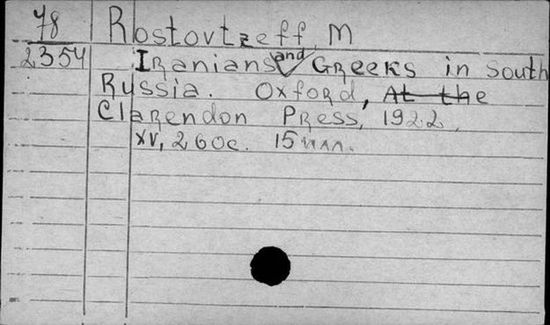 78 Rostovtzeff M
2354 Iranians and Greeks in South
Russia. Oxford, At the
Clarendon Press, 1922,
XV, 260c. 15илл.